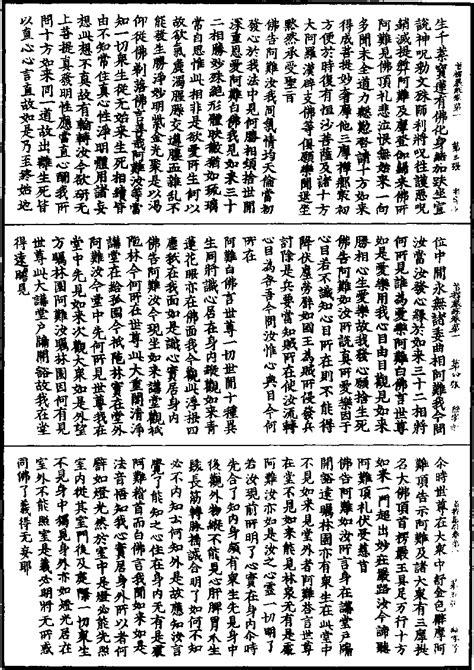 生千葉寶蓮有佛化身結加趺坐宣
說神呪勑文殊師利將呪往護惡呪
銷滅提奬阿難及摩登伽歸來佛所
阿難見佛頂礼悲泣恨無始來一向
多聞未全道力慇懃啓請十方如來
得成菩提妙奢摩他三摩禪那最初
方便於時復有恒沙菩薩及諸十方
大阿羅漢辟支佛等俱願樂聞退坐
默然承受聖旨
佛告阿難汝我同氣情均天倫當初
發心於我法中見何勝相頓捨世間
深重恩愛阿難白佛我見如來三十
二相勝妙殊絕形體暎徹猶如瑠璃
常自思惟此相非是欲愛所生何以
故欲氣麁濁腥臊交遘膿血雜亂不
能發生勝淨妙明紫金光聚是以渴
仰從佛剃落佛言善哉阿難汝等當
知一切衆生從無始來生死相續皆
由不知常住真心性淨明體用諸妄
想此想不真故有輪轉汝今欲研無
上菩提真發明性應當直心詶我所
問十方如來同一道故出離生死皆
以直心心言直故如是乃至終始地
位中間永無諸委曲相阿難我今問
汝當汝發心緣於如來三十二相將
何所見誰為愛樂阿難白佛言世尊
如是愛樂用我心目由目觀見如來
勝相心生愛樂故我發心願捨生死
佛告阿難如汝所說真所愛樂因于
心目若不識知心目所在則不能得
降伏塵勞譬如國王為賊所侵發兵
討除是兵要當知賊所在使汝流轉
心目為咎吾今問汝唯心與目今何
所在
阿難白佛言世尊一切世間十種異
生同將識心居在身內縱觀如來青
蓮花眼亦在佛面我今觀此浮根四
塵秖在我面如是識心實居身內
佛告阿難汝今現坐如來講堂觀祇
陁林今何所在世尊此大重閣清淨
講堂在給孤園今祇陁林實在堂外
阿難汝今堂中先何所見世尊我在
堂中先見如來次觀大衆如是外望
方矚林園阿難汝矚林園因何有見
世尊此大講堂戶牖開豁故我在堂
得遠瞻見
尒時世尊在大衆中舒金色臂摩阿
難頂告示阿難及諸大衆有三摩提
名大佛頂首楞嚴王具足万行十方
如來一門超出妙莊嚴路汝今諦聽
阿難頂礼伏受慈旨
佛告阿難如汝所言身在講堂戶牖
開豁遠矚林園亦有衆生在此堂中
不見如來見堂外者阿難荅言世尊
在堂不見如來能見林泉無有是處
阿難汝亦如是汝之心靈一切明了
若汝現前所明了心實在身內尒時
先合了知內身頗有衆生先見身中
後觀外物縱不能見心肝脾胃爪生
髮長筋轉脉搖誠合明了如何不知
必不內知云何知外是故應知汝言
覺了能知之心住在身內無有是處
阿難稽首而白佛言我聞如來如是
法音悟知我心實居身外所以者何
譬如燈光然於室中是燈必能先照
室內從其室門後及庭際一切衆生
不見身中獨見身外亦如燈光居在
室外不能照室是義必明將無所惑
同佛了義得無妄耶